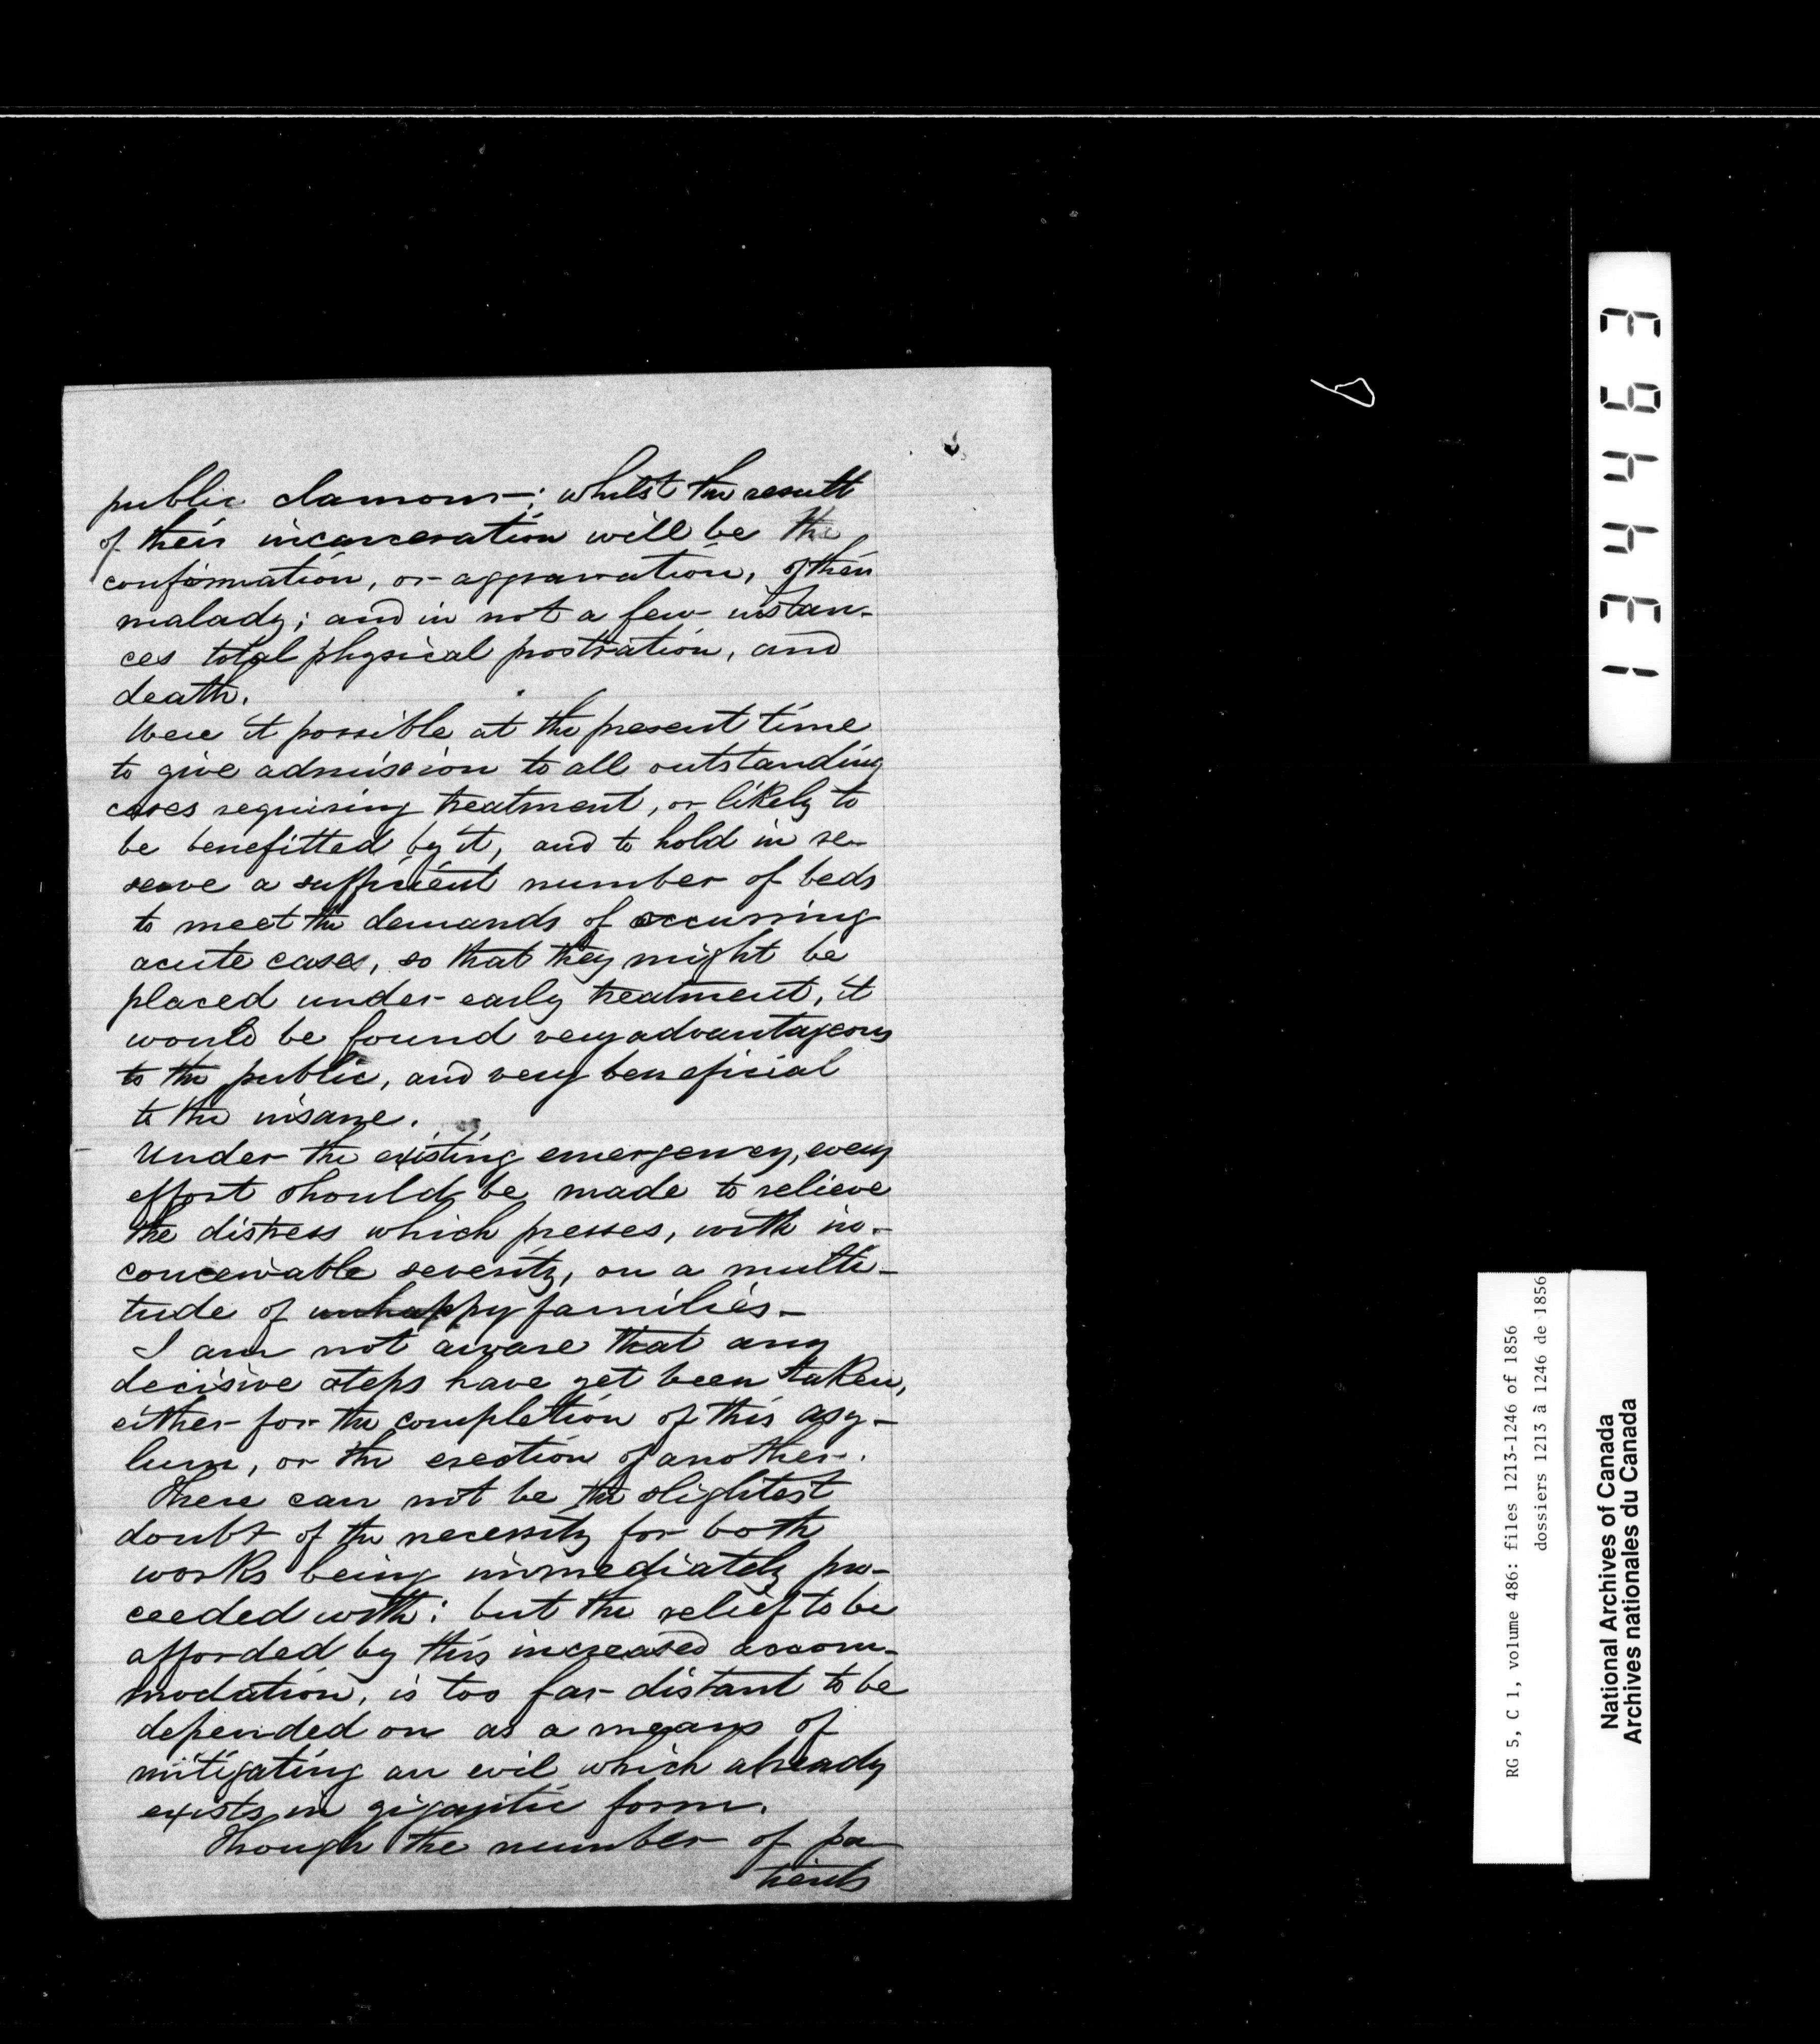 public clamour; whilst the result
of their incarceration will be the
confirmation, or aggravation, of their
malady; and in not a few instan-
ces total physical prostration, and
death.
Were it possible at the present time
to give admission to all outstanding
cases requiring treatment, or likely to
be benefitted by it, and to hold in re-
serve a sufficient number of beds
to meet the demands of occurring
acute cases, so that they might be
placed under early treatment, it
would be found very advantageous
to the public, and very beneficial
to the insane.
Under the existing emergency, every
effort should be made to relieve
the distress which presses, with in-
conceivable severity, on a multi-
tude of unhappy families-
I am not aware that any
decisive steps have yet been taken,
either for the completion of this asy-
lum, or the erection of another.
There can not be the slightest
doubt of the necessity for both
works being immediately pro-
ceeded with: but the relief to be
afforded by this increased accom-
modation, is too far distant to be
depended on as a means of
mitigating an evil which already
exists in gigantic form.
Though the number of pa-
tients
134463
RG 5, C 1, volume 486: files 1213-1246 of 1856
dossiers 1213 à 1246 de 1856
National Archives of Canada
Archives nationales du Canada